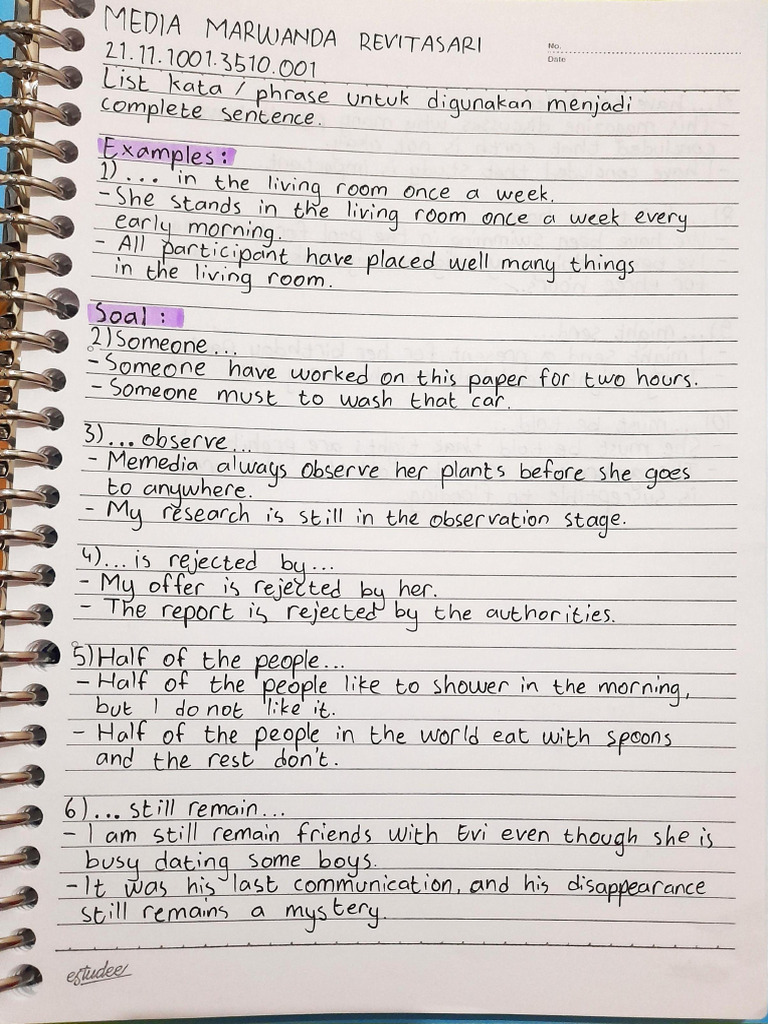 MEDIA MARWANDA REVITASARI
No.
Date
21.11.1001.3510.001
List kata / phrase untuk digunakan menjadi
complete sentence.
Examples:
1) ... in the living room once a week.
- She stands in the living room once a week every
early morning.
- All participant have placed well many things
in the living room.
Soal :
2) Someone ...
- Someone have worked on this paper for two hours.
- Someone must to wash that car.
3) ... observe ...
- Memedia always observe her plants before she goes
to anywhere.
- My research is still in the observation stage.
4) ... is rejected by ...
- My offer is rejected by her.
- The report is rejected by the authorities.
5) Half of the people ...
- Half of the people like to shower in the morning,
but I do not like it.
- Half of the people in the world eat with spoons
and the rest don't.
6) ... still remain ...
- I am still remain friends with Evi even though she is
busy dating some boys.
- It was his last communication, and his disappearance
still remains a mystery.
estudee